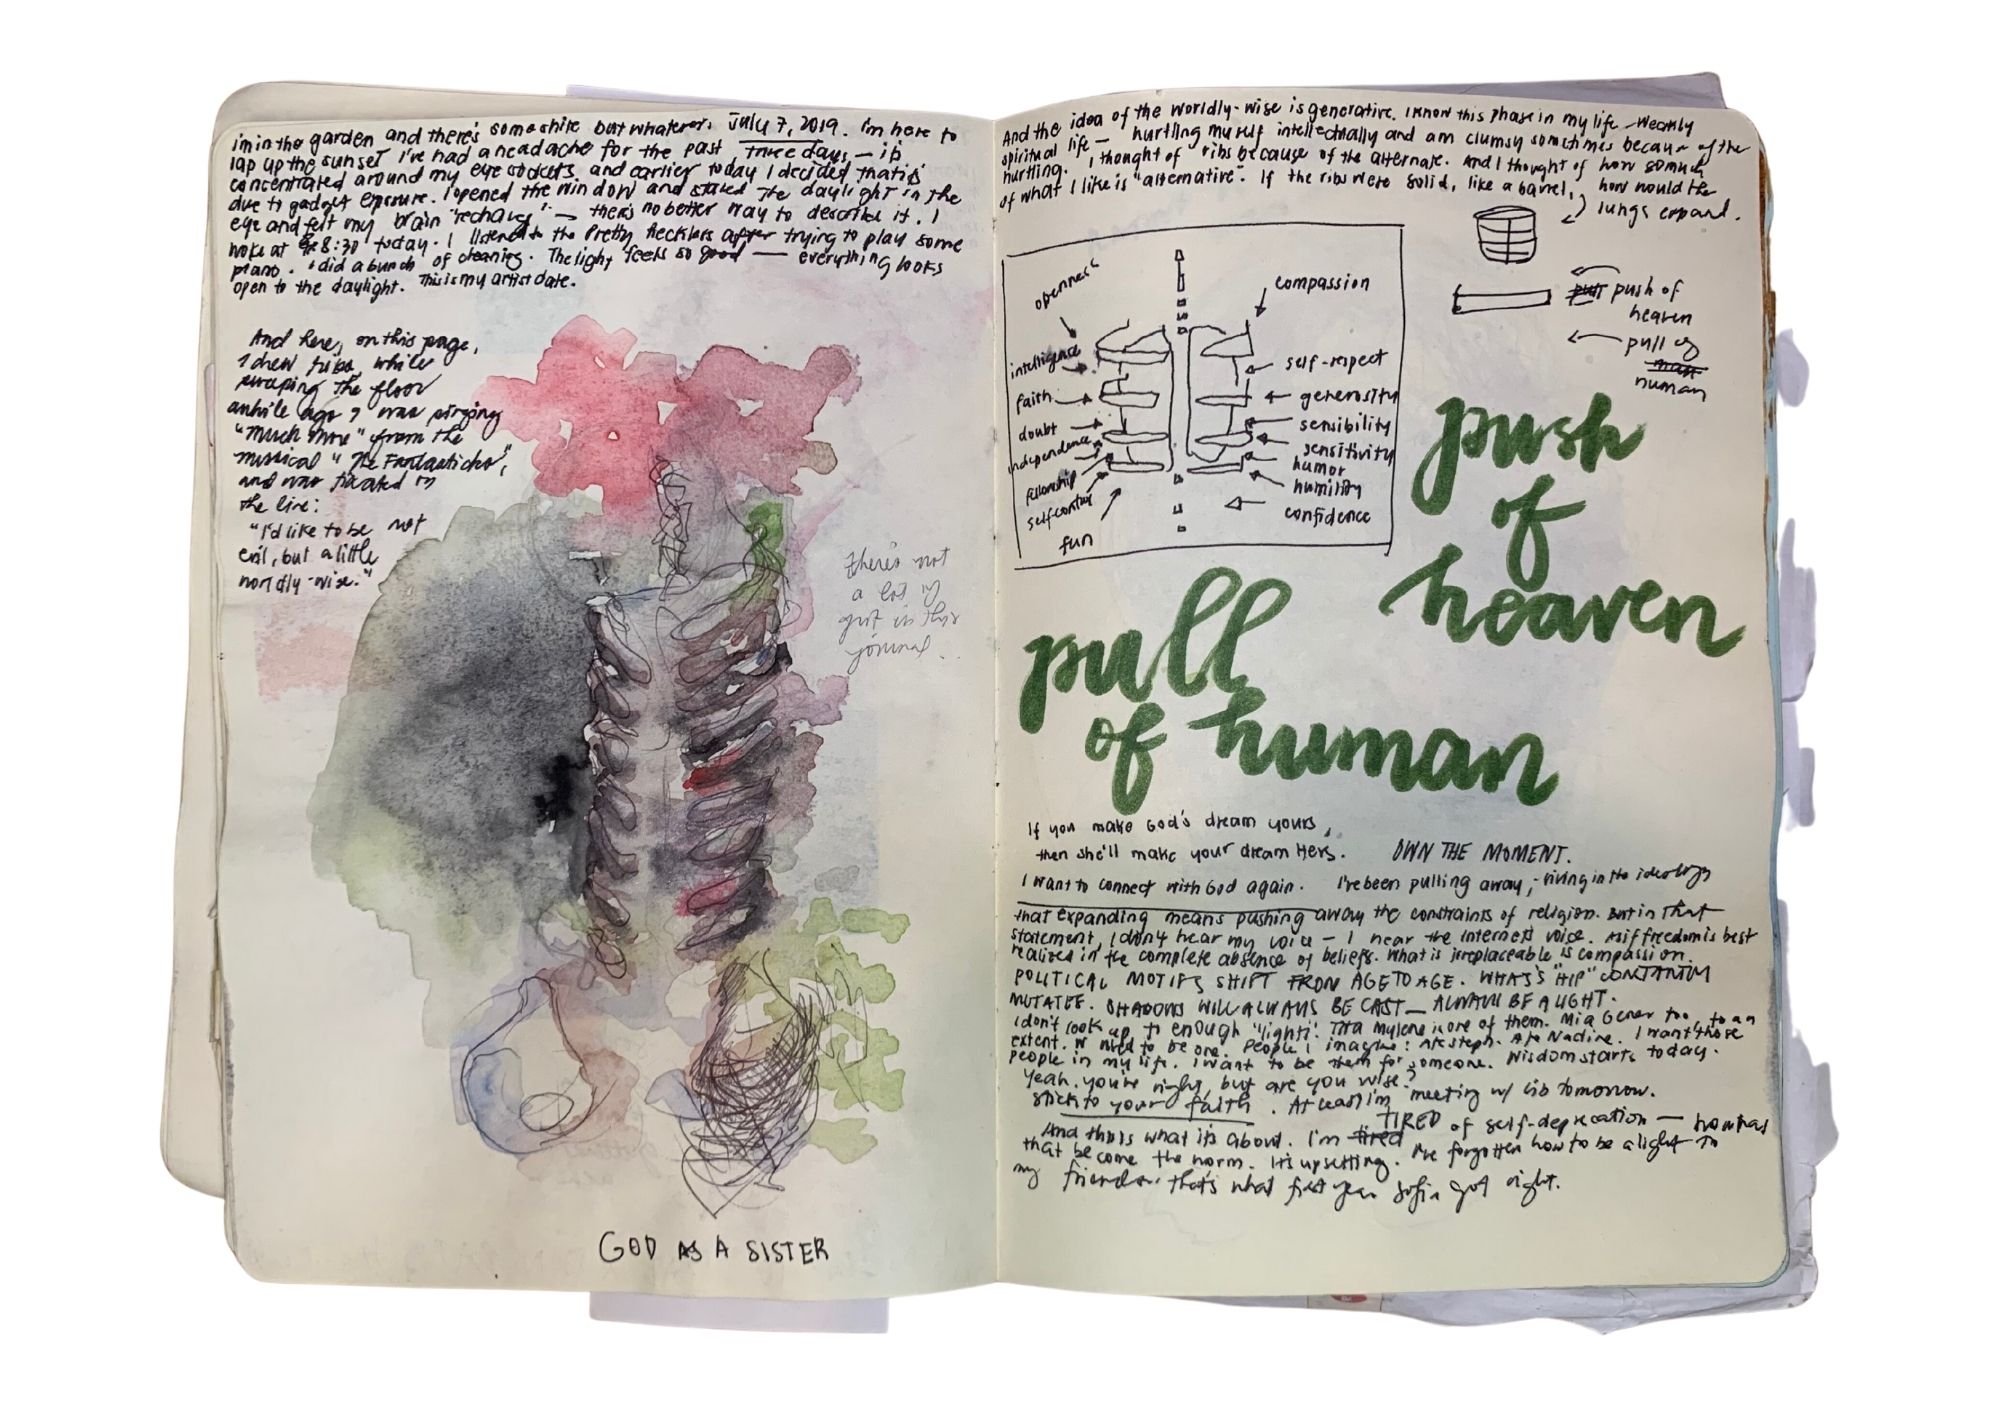 i'm in the garden and there's some shite but whatever. July 7, 2019. I'm here to
lap up the sunset I've had a headache for the past three days — it's
concentrated around my eye sockets, and earlier today I decided that it's
due to gadget exposure. I opened the window and stared the daylight in the
eye and felt my brain "recharge" — there's no better way to describe it. I
woke at 8:30 today. I listened to the Pretty Hecklers after trying to play some
piano. I did a bunch of cleaning. The light feels so good — everything looks
open to the daylight. This is my artist date.
And here, on this page,
I drew ribs, while
sweeping the floor
awhile ago I was singing
"much more" from the
musical "The Fantasticks",
and was fixated on
the line:
"I'd like to be not
evil, but a little
worldly-wise."
there's not
a lot of
grit in this
journal...
GOD AS A SISTER
And the idea of the worldly-wise is generative. I know this phase in my life — weakly
spiritual life — hurtling myself intellectually and am clumsy sometimes because of the
hurtling. I thought of ribs because of the alternate. And I thought of how so much
of what I like is "alternative". If the ribs were solid, like a barrel, how would the
lungs expand.
openness
compassion
intelligence
self-respect
faith
generosity
doubt
sensibility
independence
sensitivity
fellowship
humor
self control
humility
confidence
fun
push of
heaven
pull of
human
push
of
heaven
pull
of human
If you make God's dream yours,
then she'll make your dream Hers. OWN THE MOMENT.
I want to connect with God again. I've been pulling away, - living in the ideology
that expanding means pushing away the constraints of religion. But in that
statement, I don't hear my voice — I hear the internet's voice. As if freedom is best
realized in the complete absence of beliefs. What is irreplaceable is compassion.
POLITICAL MOTIFS SHIFT FROM AGE TO AGE. WHAT'S "HIP" CONSTANTLY
MUTATES. SHADOWS WILL ALWAYS BE CAST — ALWAYS BE A LIGHT.
I don't look up to enough "lights". Tita Mylene is one of them. Mia Gener too, to an
extent. need to be one. People I imagine: Ate Steph. Ate Nadine. I want those
people in my life. I want to be them for someone. Wisdom starts today.
Yeah, you're right, but are you wise?
Stick to your faith. At least I'm meeting w/ Lib tomorrow.
And this is what it's about. I'm tired TIRED of self-deprecation — how has
that become the norm. It's upsetting. I've forgotten how to be a light to
my friends. That's what first year Sofia got right.